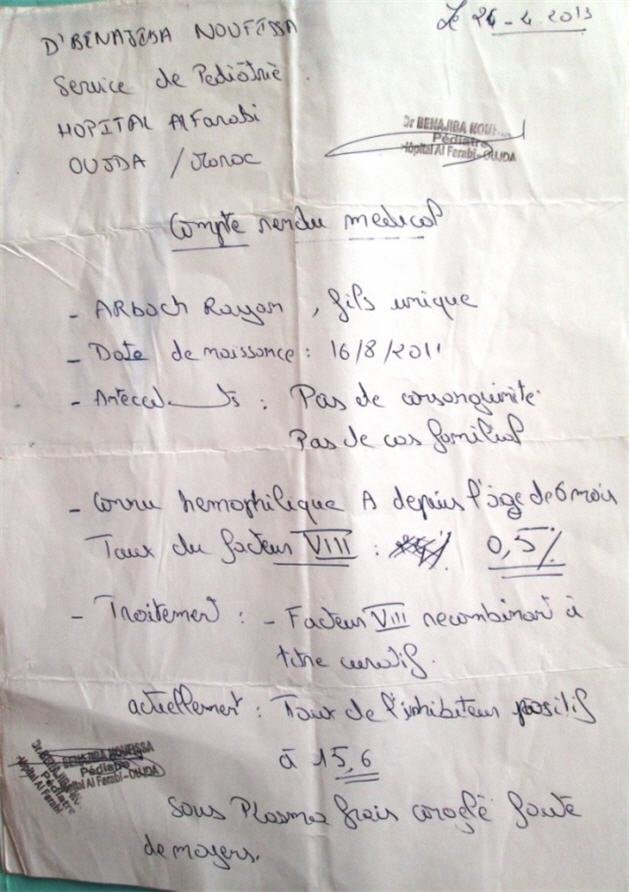 Le 24-4-2013
Dr BENAJIBA NOUFISSA
Service de Pediatrie
HOPITAL AlFarabi
OUJDA / Maroc
Dr BENAJIBA NOUF
Pédiatre
Hôpital Al Farabi-OUJDA
Compte rendu medical
- ARboch Rayan, fils unique
- Date de naissance : 16/8/2011
- Antecedents : Pas de consanguinité
Pas de cas familial
- Connu hemophilique A depuis l'âge de 6 mois
Taux du facteur VIII : 0,5%
- Traitement : - Facteur VIII recombinant à
titre curatif.
actuellement : Taux de l'inhibiteur positif
à 15,6
Dr BENAJIBA NOUFISSA
Pédiatre
Hôpital Al Farabi-OUJDA
Sous Plasma frais congelé faute
de moyens.